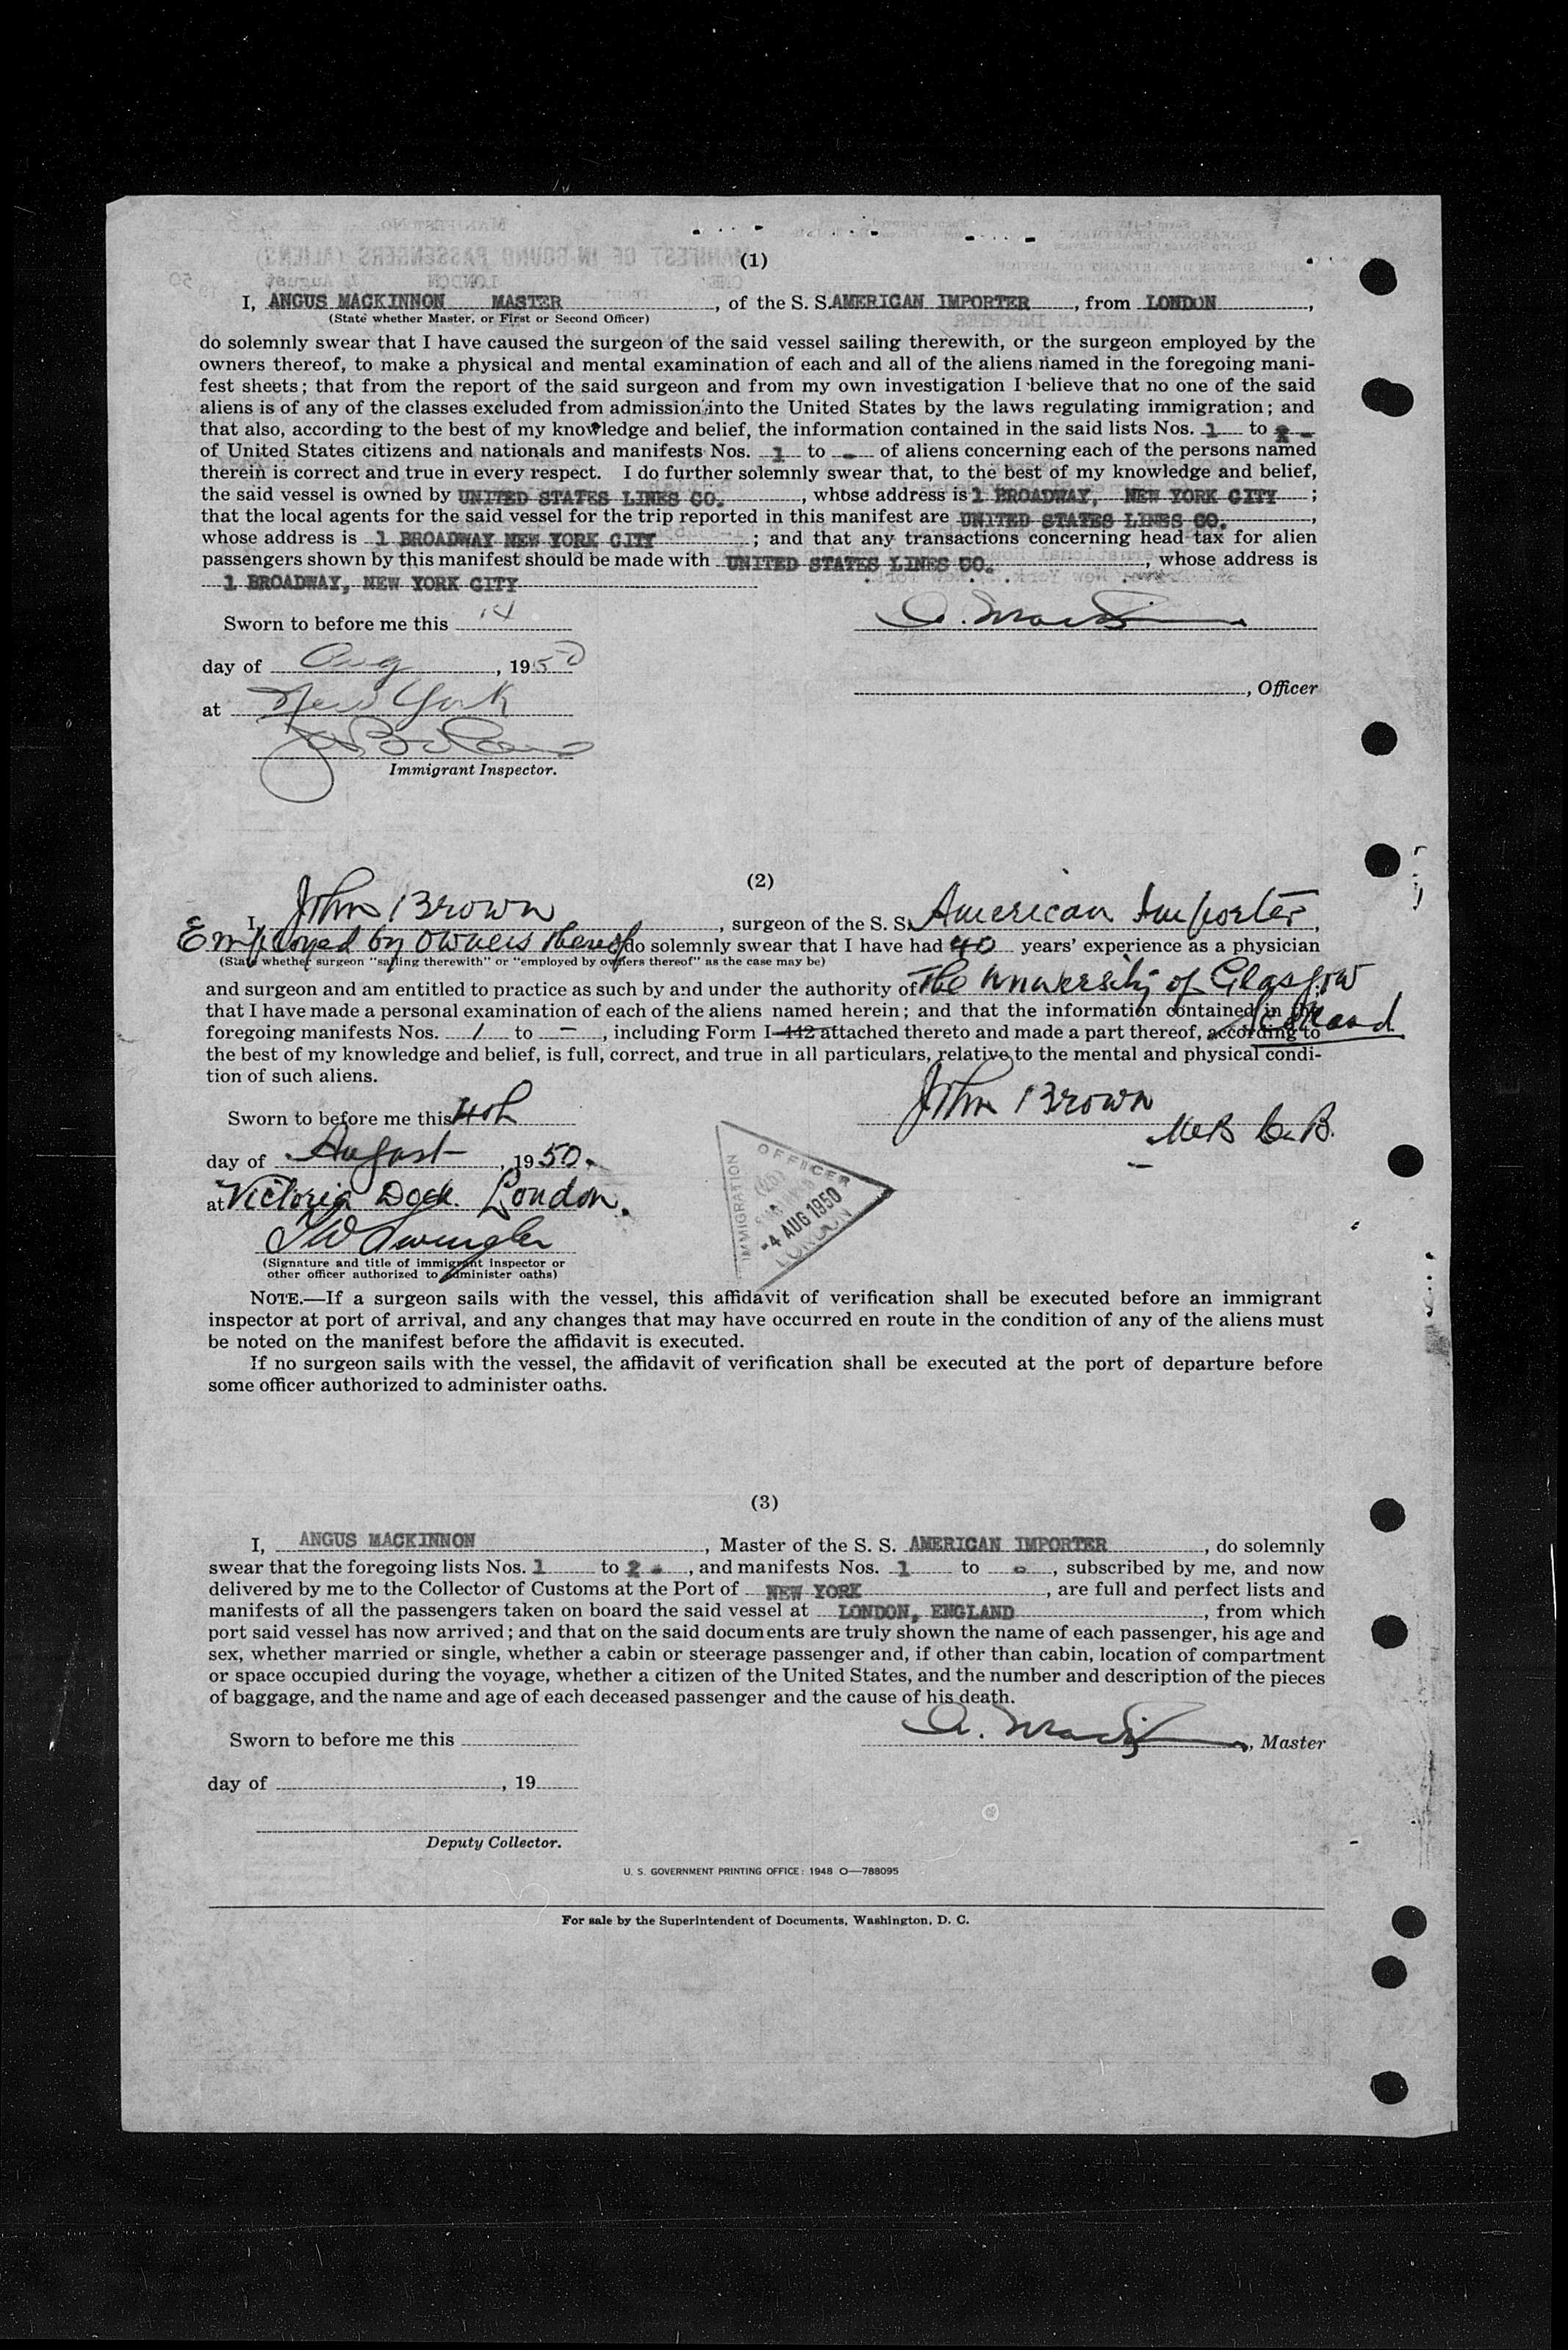 (1)
I, ANGUS MACKINNON MASTER, of the S. S. AMERICAN IMPORTER, from LONDON,
(State whether Master, or First or Second Officer)
do solemnly swear that I have caused the surgeon of the said vessel sailing therewith, or the surgeon employed by the
owners thereof, to make a physical and mental examination of each and all of the aliens named in the foregoing mani-
fest sheets; that from the report of the said surgeon and from my own investigation I believe that no one of the said
aliens is of any of the classes excluded from admission into the United States by the laws regulating immigration; and
that also, according to the best of my knowledge and belief, the information contained in the said lists Nos. 1 to 2 -
of United States citizens and nationals and manifests Nos. 1 to - of aliens concerning each of the persons named
therein is correct and true in every respect. I do further solemnly swear that, to the best of my knowledge and belief,
the said vessel is owned by UNITED STATES LINES CO., whose address is 1 BROADWAY, NEW YORK CITY;
that the local agents for the said vessel for the trip reported in this manifest are UNITED STATES LINES CO.,
whose address is 1 BROADWAY NEW YORK CITY; and that any transactions concerning head tax for alien
passengers shown by this manifest should be made with UNITED STATES LINES CO., whose address is
1 BROADWAY, NEW YORK CITY
Sworn to before me this 14
day of Aug, 1950
, Officer
at New York
Immigrant Inspector.
(2)
I, John Brown, surgeon of the S. S. American Importer,
Employed by Owners thereof do solemnly swear that I have had 40 years' experience as a physician
(State whether surgeon "sailing therewith" or "employed by owners thereof" as the case may be)
and surgeon and am entitled to practice as such by and under the authority of The University of Glasgow
Scotland
that I have made a personal examination of each of the aliens named herein; and that the information contained in the
foregoing manifests Nos. 1 to -, including Form I-442 attached thereto and made a part thereof, according to
the best of my knowledge and belief, is full, correct, and true in all particulars, relative to the mental and physical condi-
tion of such aliens.
John Brown
M.B. Ch. B.
Sworn to before me this 4th
day of August, 1950.
at Victoria Dock London.
(Signature and title of immigrant inspector or
other officer authorized to administer oaths)
IMMIGRATION OFFICER
-4 AUG 1950
LONDON
NOTE.—If a surgeon sails with the vessel, this affidavit of verification shall be executed before an immigrant
inspector at port of arrival, and any changes that may have occurred en route in the condition of any of the aliens must
be noted on the manifest before the affidavit is executed.
If no surgeon sails with the vessel, the affidavit of verification shall be executed at the port of departure before
some officer authorized to administer oaths.
(3)
I, ANGUS MACKINNON, Master of the S. S. AMERICAN IMPORTER, do solemnly
swear that the foregoing lists Nos. 1 to 2 -, and manifests Nos. 1 to -, subscribed by me, and now
delivered by me to the Collector of Customs at the Port of NEW YORK, are full and perfect lists and
manifests of all the passengers taken on board the said vessel at LONDON, ENGLAND, from which
port said vessel has now arrived; and that on the said documents are truly shown the name of each passenger, his age and
sex, whether married or single, whether a cabin or steerage passenger and, if other than cabin, location of compartment
or space occupied during the voyage, whether a citizen of the United States, and the number and description of the pieces
of baggage, and the name and age of each deceased passenger and the cause of his death.
Sworn to before me this
, Master
day of , 19
Deputy Collector.
U. S. GOVERNMENT PRINTING OFFICE: 1948 O—788095
For sale by the Superintendent of Documents, Washington, D. C.